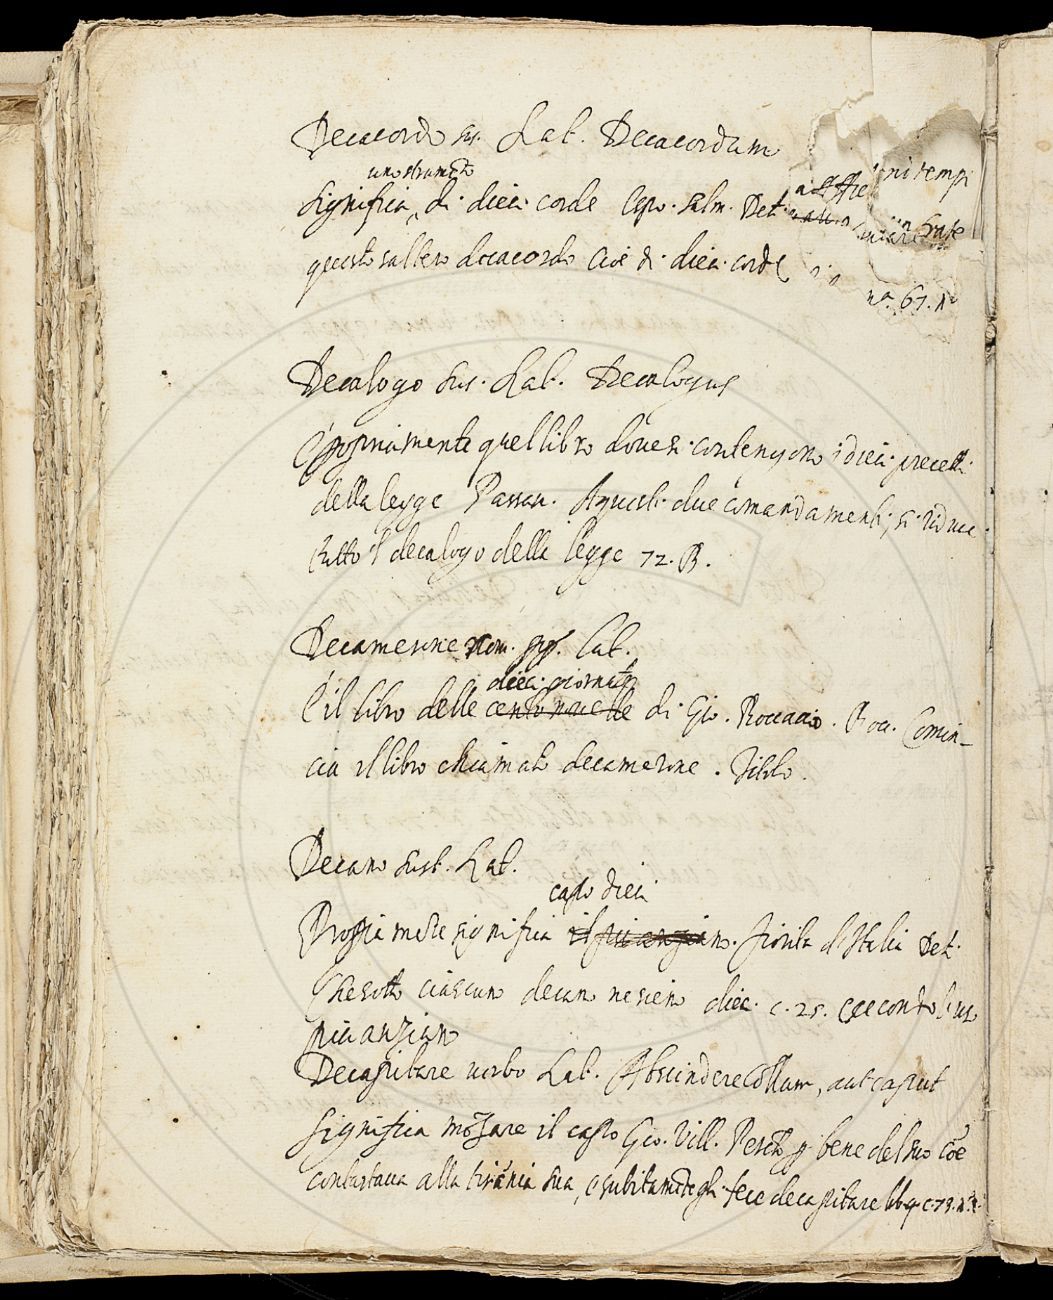 Decacordo sus. Lat. Decacordum
uno strumto
significa, di dieci corde Espo. Salm. Det
questo saltero decacordo cioè di dieci corde
no. 67.
Decalogo sus. Lat. Decalogus
È propriamente quel libro dove si contengono i dieci precetti
della legge Passau. A questi due comandamenti si riduce
tutto 'l decalogo della legge 72. B.
Decamerone nom. pp. Lat.
dieci giornate
È il libro delle cento nuelle di Gio. Boccacio. Bocc. Comin-
cia il libro chiamato decamerone. Titolo.
Decano sust. Lat.
capo dieci
Propiamete significa il piu anziano. fiorita d'Italia Det.
che sotto ciascuno decano ne sieno diec. c. 25.
piu anziano
Decapitare verbo Lat. Abscindere Collum, aut caput
significa mozare il capo Gio. Vill. Perchè p bene del suo cōe
contastava alla tirānia sua, e subitamēte gli fece decapitare c. 79.